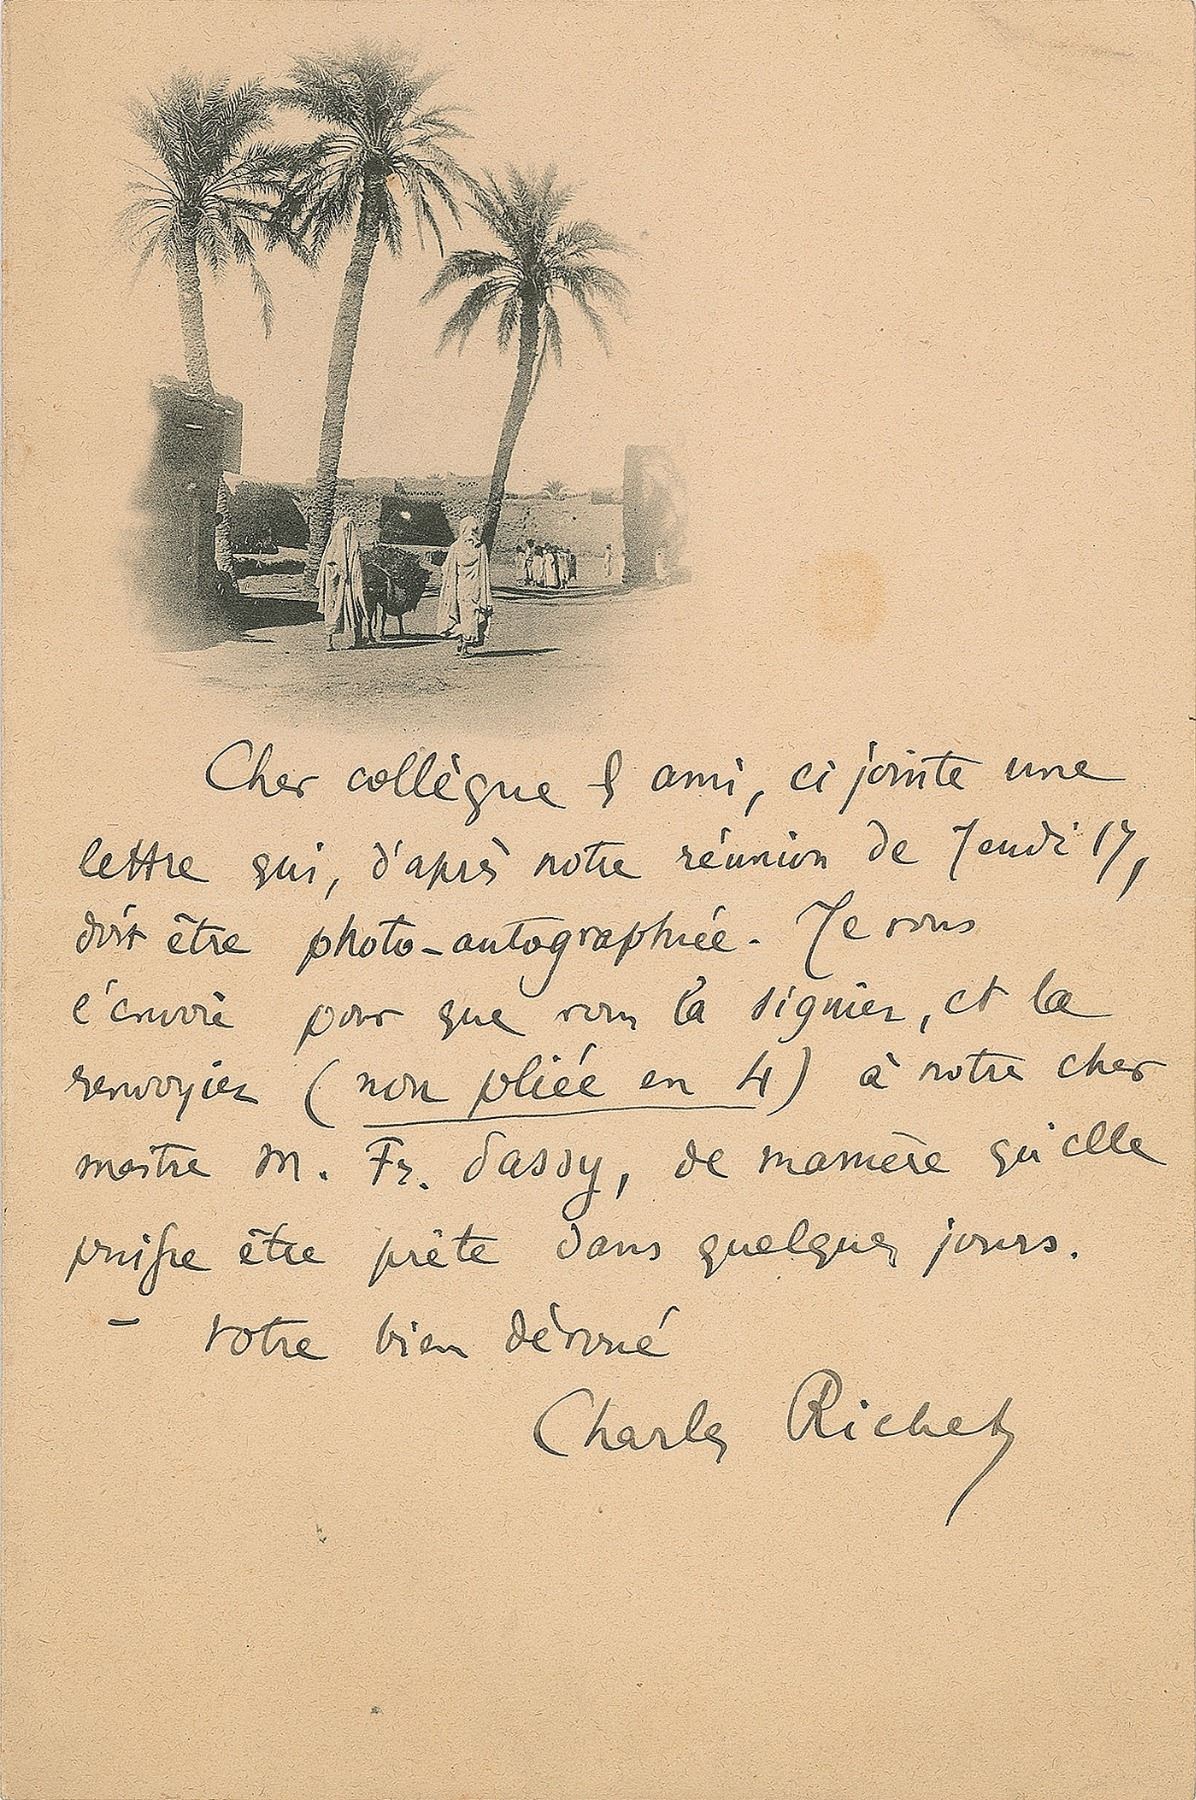 Cher collègue & ami, ci jointe une
lettre qui, d'après notre réunion de Jeudi 17,
doit être photo-autographiée. Je vous
l'envoie pour que vous la signiez, et la
renvoyiez (non pliée en 4) à notre cher
maitre M. Fr. Passy, de manière qu'elle
puisse être prête dans quelques jours.
— votre bien dévoué
Charles Richet